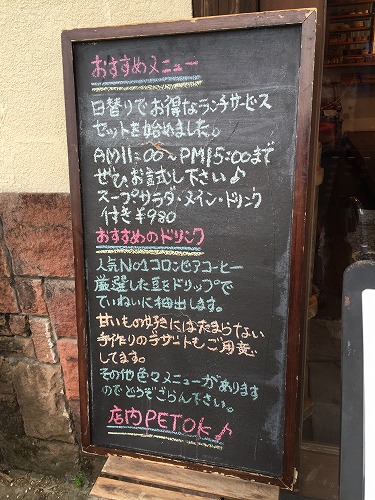 おすすめメニュー
日替りでお得なランチサービス
セットを始めました。
AM11:00~PM15:00まで
ぜひお試し下さい♪
スープ・サラダ・メイン・ドリンク
付き¥980
おすすめのドリンク
人気No1コロンビアコーヒー
厳選した豆をドリップで
ていねいに抽出します。
甘いもの好きにはたまらない
手作りのデザートもご用意
してます。
その他色々メニューがあります
のでどうぞごらん下さい。
店内PETOK♪